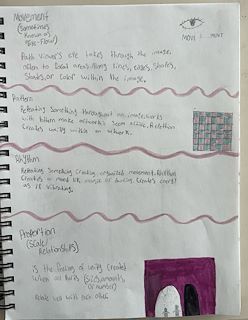 Movement
(Sometimes
Known as
"Eye-Flow)
MOVE MENT
Path viewer's eye takes through the image,
often to focal areas. Using lines, edges, shapes,
Shades, or Color within the image.
Pattern
Repeating Something throughout an
with pattern make artwork's Seem active. Repetition
Creates unity within an artwork.
Rhythm
Repeating Something creating organized movement. Rhythm
Creates a mood like music or dancing. Creates energy
as if vibrating.
Proportion
(Scale/
Relationships)
is the feeling of unity Created
when all Parts (Sizes, amounts,
or number)
Relate well with each other